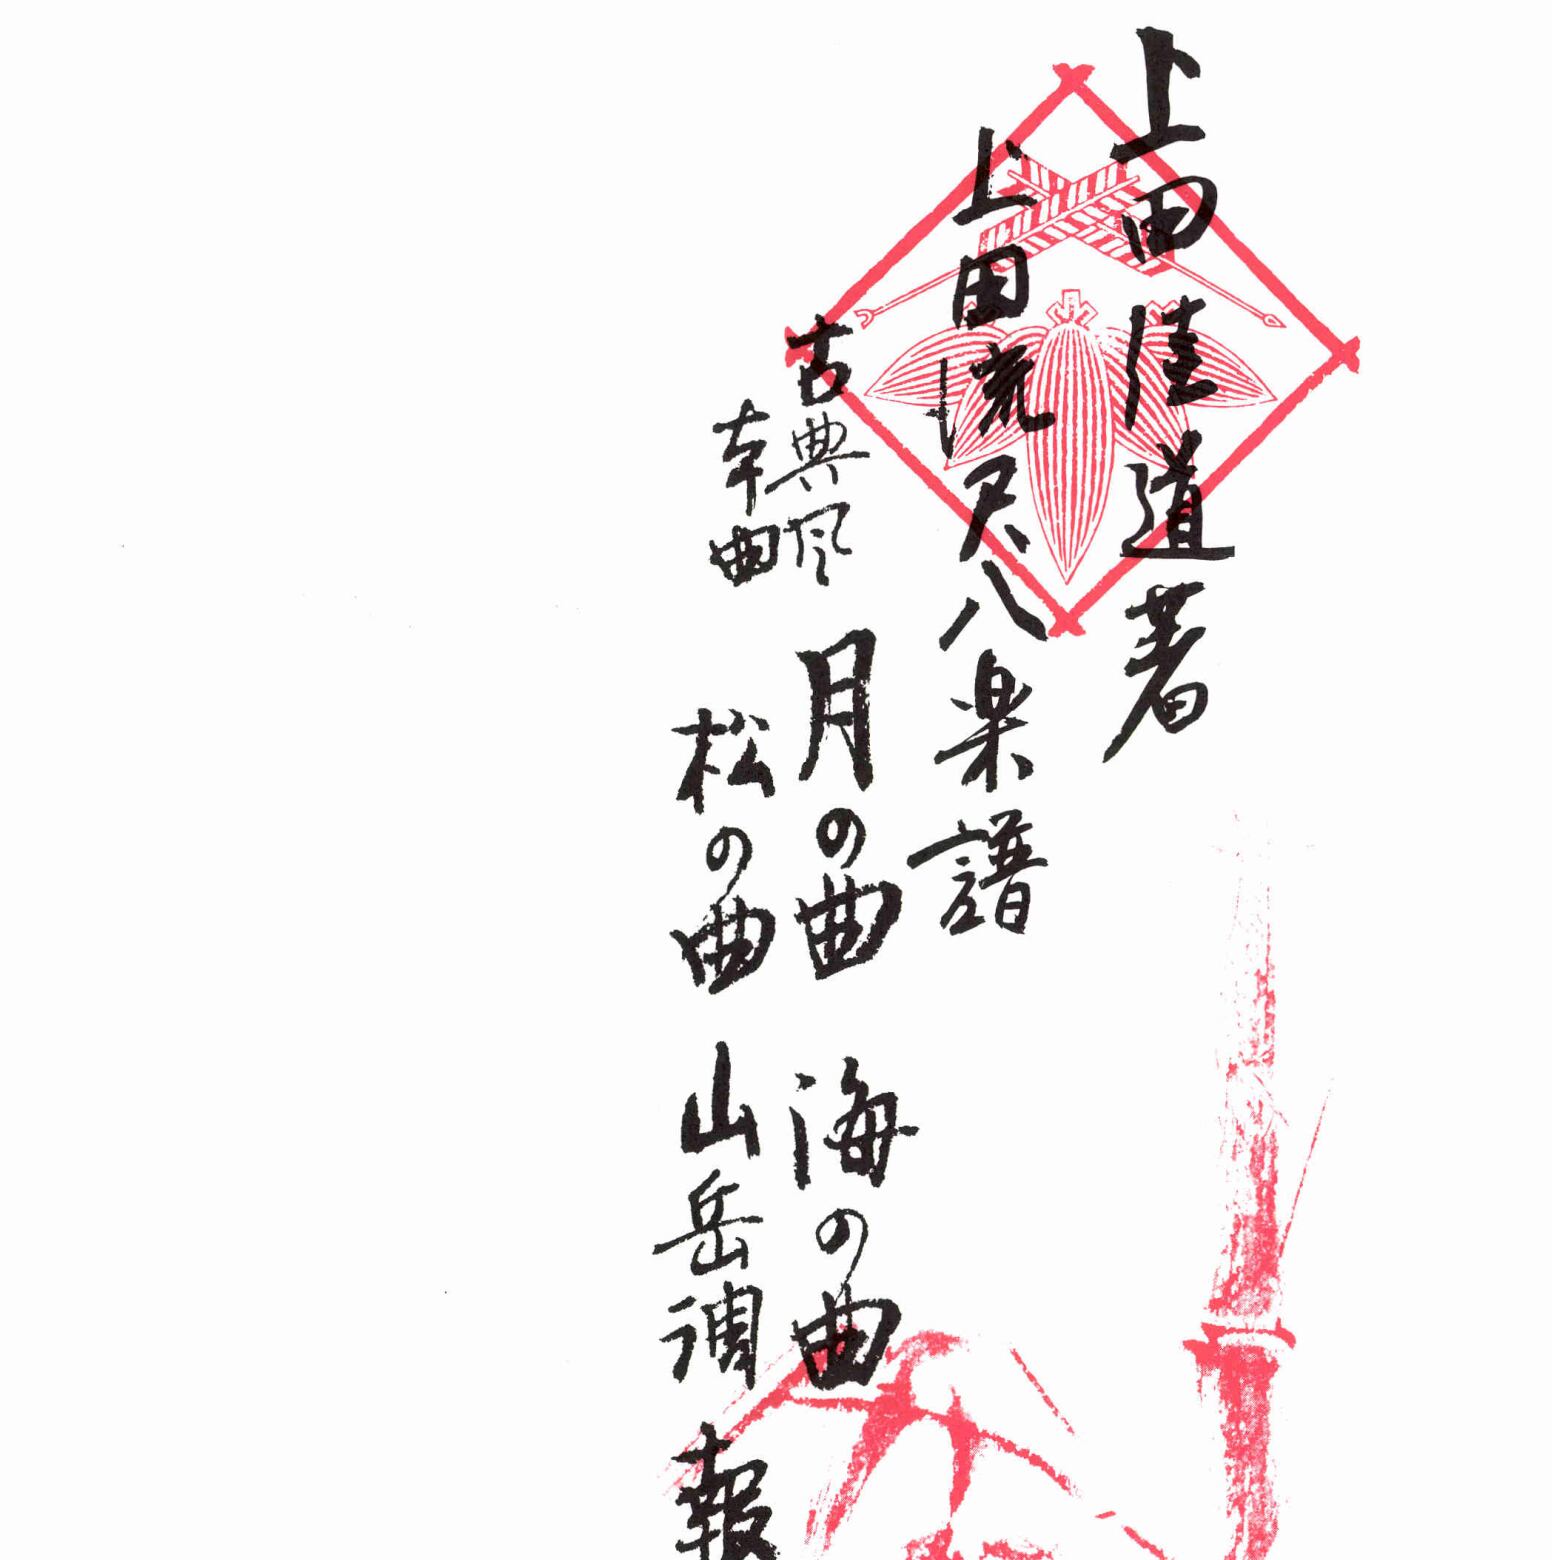 上田佳道著
上田流尺八楽譜
古典風
本曲
月の曲 海の曲
松の曲 山岳調 報